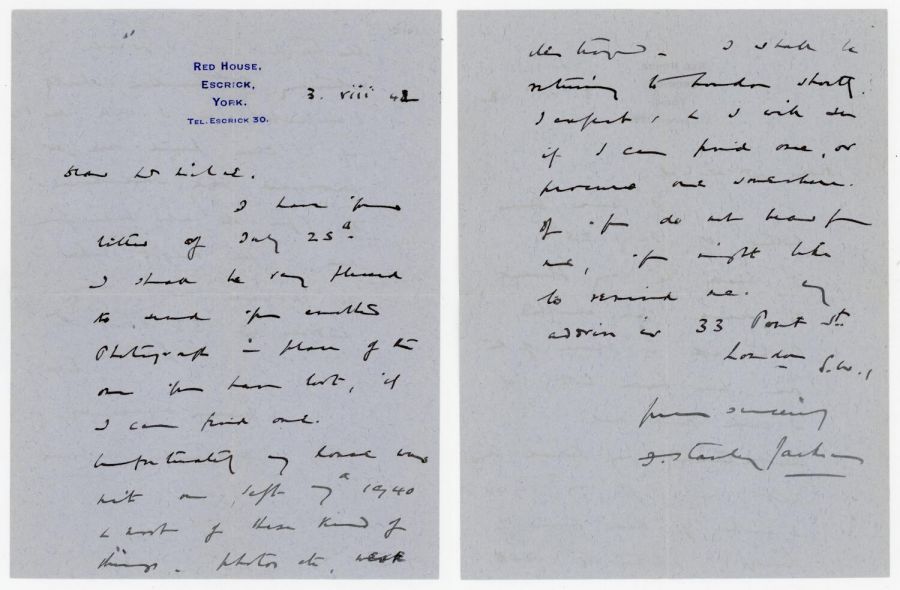 RED HOUSE,
ESCRICK,
YORK.
TEL. ESCRICK 30.
3. viii 42
Dear Mr
I have your
letter of July 25th.
I shall be very pleased
to send you another
Photograph in place of the
one you have lost, if
I can find one.
Unfortunately my house was
hit on Sept 1940
& most of these kind of
things - photos etc, were
destroyed - I shall be
returning to London shortly
I expect, & I will see
if I can find one, or
procure one somewhere.
If you do not hear from
me, you might like
to remind me. My
address is 33 Pont St.
London S.W.1
Yours sincerely
F. Stanley Jackson